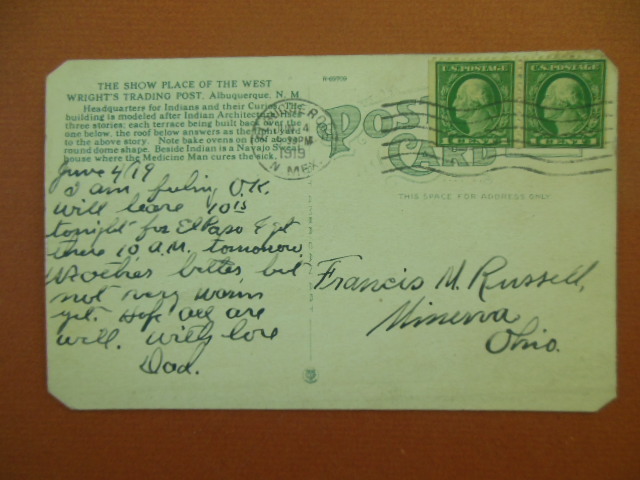 THE SHOW PLACE OF THE WEST
WRIGHT'S TRADING POST, Albuquerque, N. M.
Headquarters for Indians and their Curios. The
building is modeled after Indian Architecture
three stories, each terrace being built back over the
one below, the roof below answers as the front yard
to the above story. Note bake ovens on roof above
round dome shape. Beside Indian is a Navajo Sweat
house where the Medicine Man cures the sick.
POST
CARD
ALBUQUERQUE
JUN 4
1919
N. MEX.
U.S. POSTAGE
1 CENT 1
U.S. POSTAGE
1 CENT 1
THIS SPACE FOR ADDRESS ONLY
June 4/19
I am feeling O.K.
will leave 10 15
tonight for El Paso & get
there 10 A.M. tomorrow
Weather better, but
not very warm
yet. Hope all are
well. With love
Dad.
Francis M. Russell,
Minerva
Ohio.